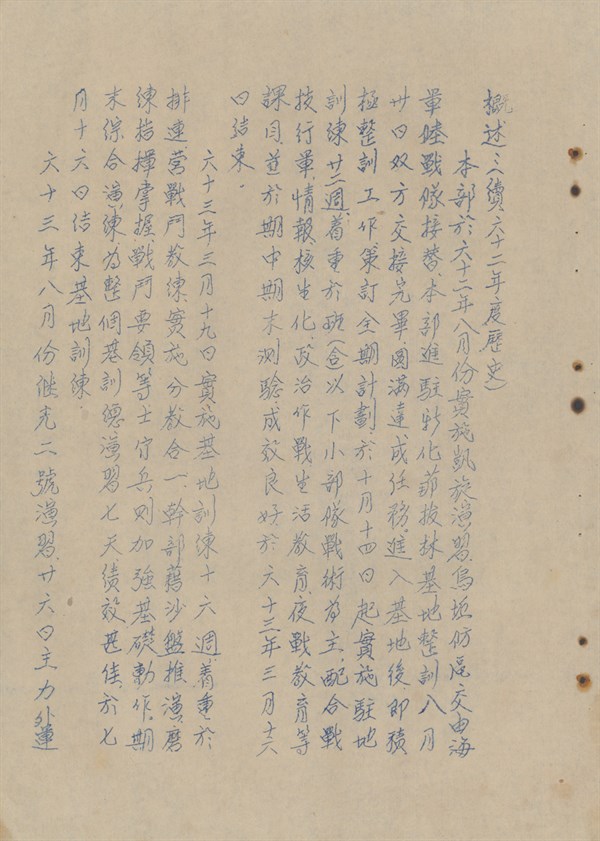 概述：（續六十二年度歷史）
本部於六十二年八月份實施凱旋演習，烏坵防區交由海
軍陸戰隊接替，本部進駐新化菲拔林基地整訓，八月
廿日奴方交接完畢，圓滿達成任務，進入基地後，即積
極整訓工作，策訂全期計劃，於十月十四日起，實施駐地
訓練廿二週，着重於班（含以下小部隊戰術為主，配合戰
技行軍，情報，核生化，政治作戰生活教育，夜戰教育等
課目，並於期中期末測驗，成效良好，於六十三年三月十六
日結束。
六十三年三月十九日實施基地訓練十六週，着重於
排、連、營戰鬥教練，實施分教合一，幹部藉沙盤推演，磨
練指揮掌握，戰鬥要領等，士官兵則加強基礎動作，期
末綜合演練為整個基訓總演習七天，績效甚佳，於七
月十六日結束基地訓練。
六十三年八月份继光二號演習，廿六日主力外運